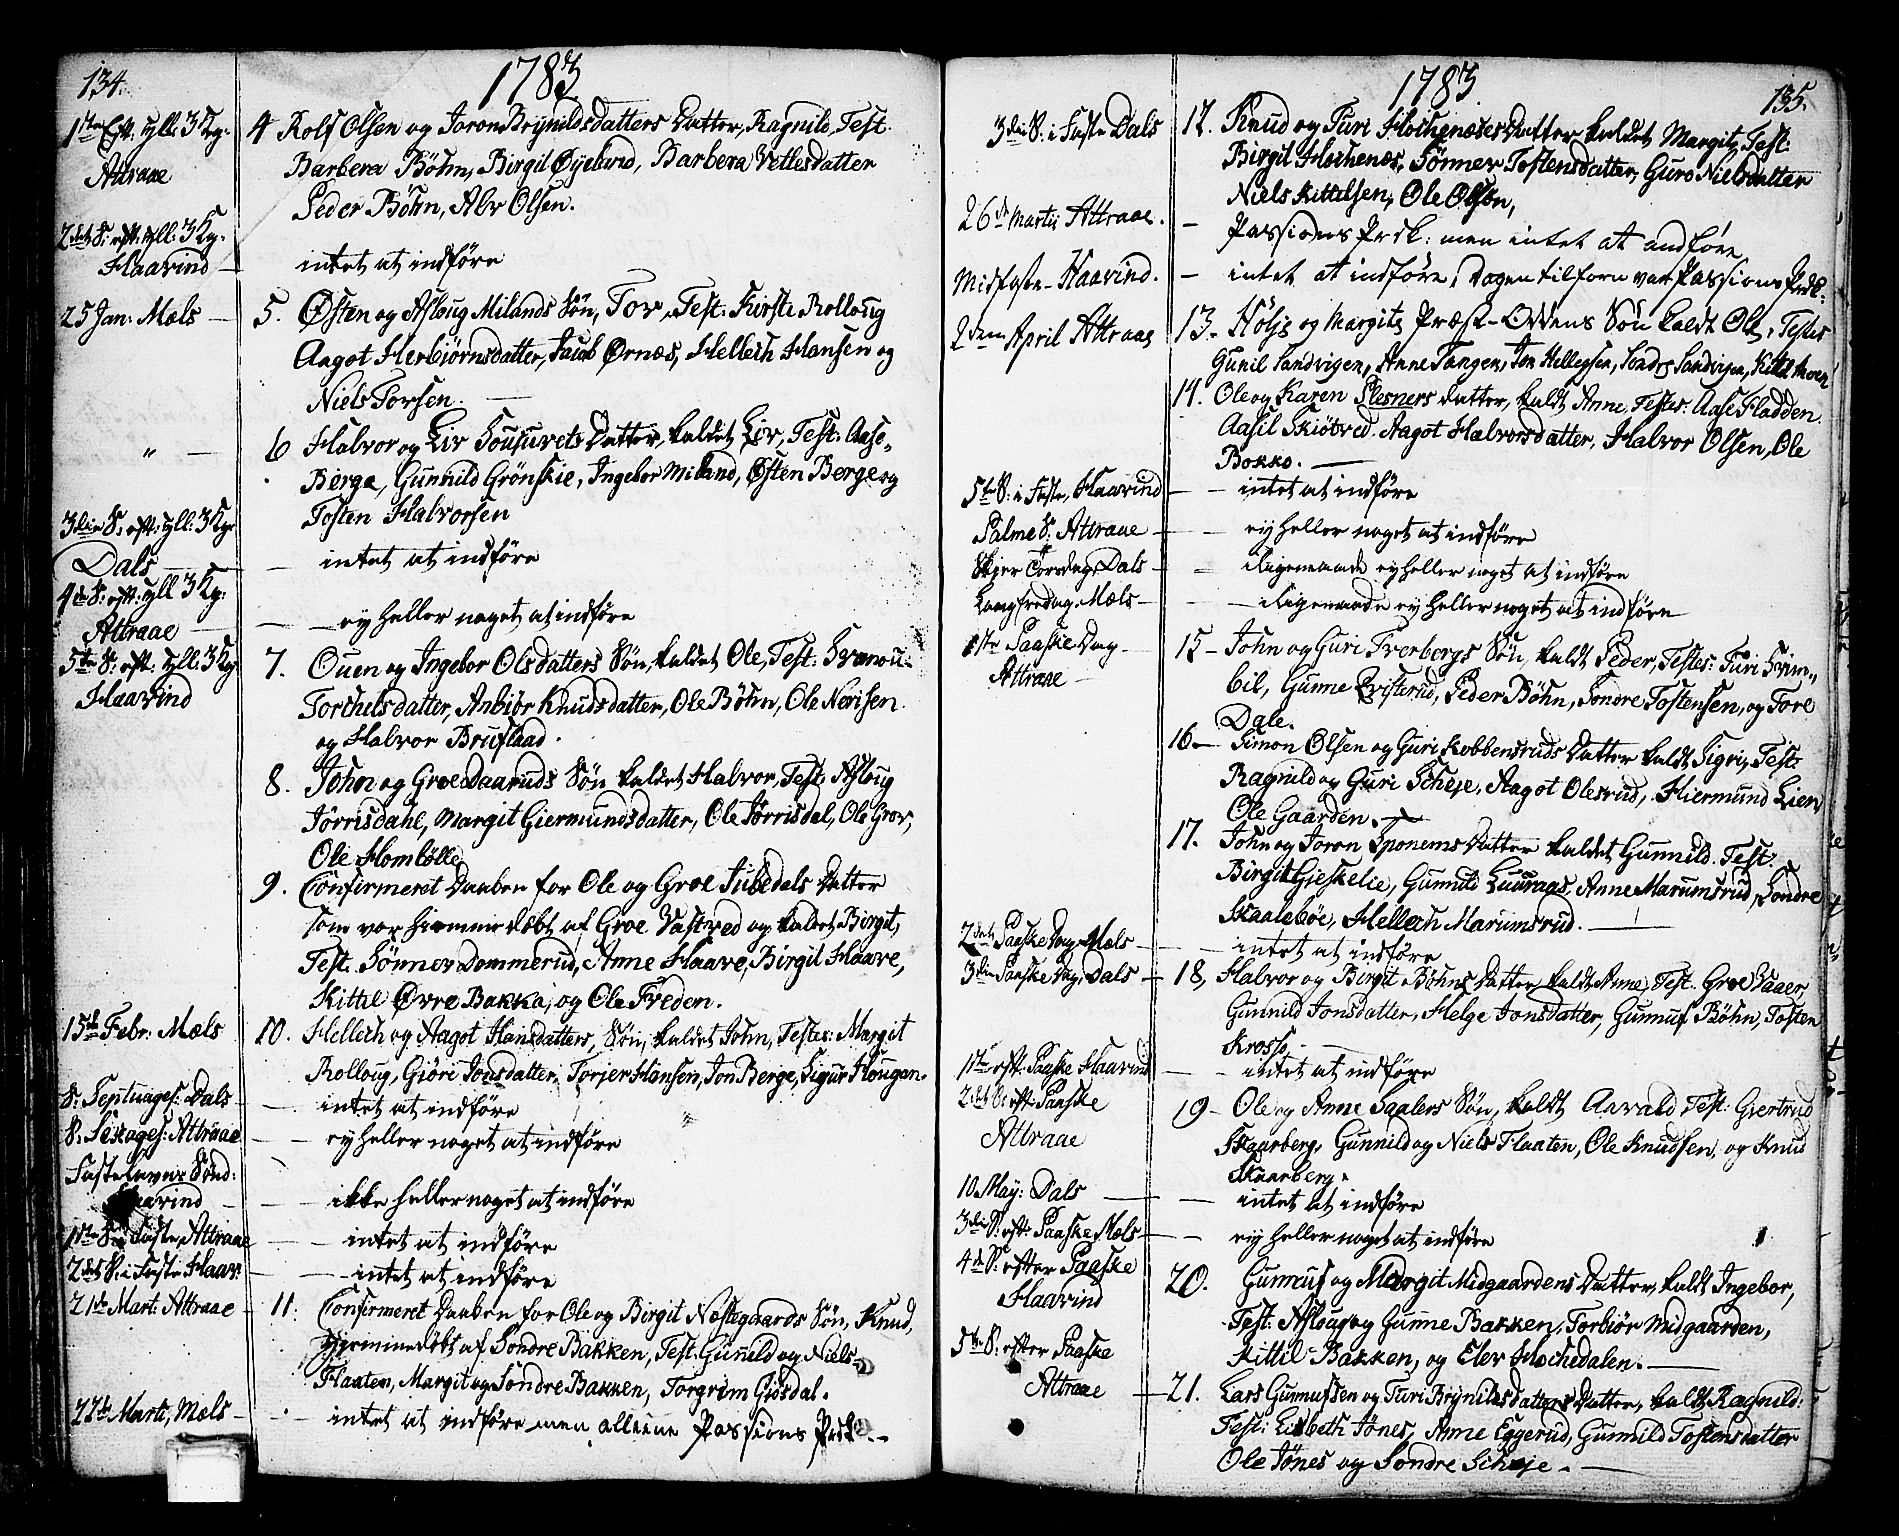 134.
1783
1ste Eft. hyll: 3 Kg:
Attraae
4 Rolf Olsen og Joron Brynildsdatters Datter, Ragnild, Test.
Barbera Böhn, Birgit Øyelund, Barbera Vetlesdatter
Peder Böhn, Alv Olsen.
2det S: eft: hyll: 3 Kg:
Haavind —
intet at indföre
25 Jan: Mæls —
5. Østen og Asloug Milands Sön, Tov, Test: Kirsti Rolloug
Aagot Herbiörnsdatter, Jacob Ørnæs, Hellech Hansen og
Niels Torsen. —
„ —
6 Halvor og Liv Sousvets Datter, kaldet Liv, Test: Aase
Berge, Gunnild Grönskie, Ingebor Miland, Østen Berge og
Tosten Halvorsen
3die S: eft: hyll: 3 Kg:
Dals —
— intet at indföre
4de S: eft: hyll 3 Kg:
Attraae —
— ey heller noget at indföre
5te S: eft: hyll: 3 Kg
Haavind
7. Ouen og Ingebor Olsdatters Sön, kaldet Ole, Test:
Torchelsdatter, Anbiör Knudsdatter, Ole Böhn, Ole Norisen
og Halvor Bruflaad.
8. John og Groe Daaruds Sön kaldet Halvor, Test: Asloug
Jörrisdahl, Margit Giermundsdatter, Ole Jörrisdal, Ole Grov,
Ole Hombölle
9. Confirmeret Daaben for Ole og Groe Jubedals Datter
som var hiemmedöbt af Groe Vastved og kaldet Birgit,
Test: Sönnev Dommerud, Anne Haave, Birgit Haave,
Kittil Øvre Bakka, og Ole Fredem.
15de Febr: Mæls
10. Hellech og Aagot Hansdatters, Sön, kaldet John, Testes: Margit
Rolloug, Giöri Jonsdatter, Torjer Hansen, Jon Berge, Sigur Hougan.
S: Septuages: Dals —
— intet at indföre
S: Sexages: Attraae
— ey heller noget at indföre
Fastelavns Sönd:
Haavind —
— ikke heller noget at indföre
1ste S: i Faste, Attraae
— intet at indföre
2det S: i Faste Haav:
— intet at indföre
21de Mart: Attraae —
11. Confirmeret Daaben for Ole og Birgit Nestegaards Sön, Knud,
hjemmedöbt af Sondre Bakken, Test: Gunild og Niels
Flaaten, Margit og Sondre Bakken, Torgrim Giösdal.
22de Marti, Mæls —
— intet at indföre men alleene Passions Prdk. —
1783.
135.
3die S: i Faste Dals
12. Knud og Turi Hochenæses Datter kaldet Margit, Test:
Birgit Hochenæs, Sönnev Tostensdatter, Guro Nielsdatter
Niels Kittilsen, Ole Olsen,
26de Martii Attraae.
— Passions Prdk: men intet at andföre
Midfaste — Haavind.
— intet at indföre, Dagen tilforn var Passions Prdk:
2den April Attraae
13. Höljs og Margits Præst-Odens Sön kaldt Ole, Testes
Gunil Sandvigen, Anne Tangen, Jon Hellegsen, Sondre Sandvigen, Kittil Moen
14. Ole og Karen Plesners Datter, kaldt Anne, Testes: Aase Fladden
Aasil Skiötved, Aagot Halvorsdatter, Halvor Olsen, Ole
Bokko. —
5te S: i Faste, Haavind
— intet at indföre
Palme S: Attraae —
— ey heller noget at indföre
Skjer Torsdag, Dals —
— iligemaade ey heller noget at indföre
Langfredag, Mæls —
— iligemaade ey heller noget at indföre
1ste Paaske Dag —
Attraae —
15 — John og Guri Tverbergs Sön, kaldt Peder, Testes: Turi
bil, Gunne Qvisterud, Peder Böhn, Sondre Tostensen, og Tore
Dale.
16. — Simon Olsen og Guri Kobbensruds Datter kaldt Sigri, Test:
Ragnild og Guri Scheje, Aagot Olesrud, Hiermund Lien
Ole Gaarden. —
17. John og Joron Sponems Datter kaldet Gunnild. Test:
Birgit Gieskelie, Gunnild Luuraas, Anne Marumsrud, Sondre
Skaaleböe, Hellech Marumsrud. —
2det Paaske Dag, Mæls —
— intet at indföre
3die Paaske Dag, Dals —
18, Halvor og Birgit Böhns Datter, kaldt Anne, Test. Groe Vaaer
Gunnild Jonsdatter, Helge Jonsdatter, Gunnuf Böhn, Tosten
Krosso. —
1ste eft: Paaske Haavind
— intet at indföre
2det S: eft: Paaske
Attraae
19 — Ole og Anne Saalers Sön, kaldt Aavald, Test: Giertrud
Skaarberg, Gunnild og Niels Flaaten, Ole Knudsen, og Knud
Skaarberg.
10. May: Dals —
— intet at indföre
3die S: eft: Paaske Mæls —
— ey heller noget at indföre
4de S: efter Paaske
Haavind
20. Gunnuf og Margit Midgaardens Datter, kaldt Ingebor,
Test: Asloug og Gunne Bakken, Torbiör Midgaarden,
Kittil Bakken, og Elev Hochedalen. —
5te S: efter Paaske
Attraae —
21. Lars Gunnufsen og Turi Brynildsdatters Datter, kaldt Ragnild:
Test: Lisbeth Jönes, Anne Eggerud, Gunnild Tostensdatter
Ole Jönes og Sondre Scheje. —